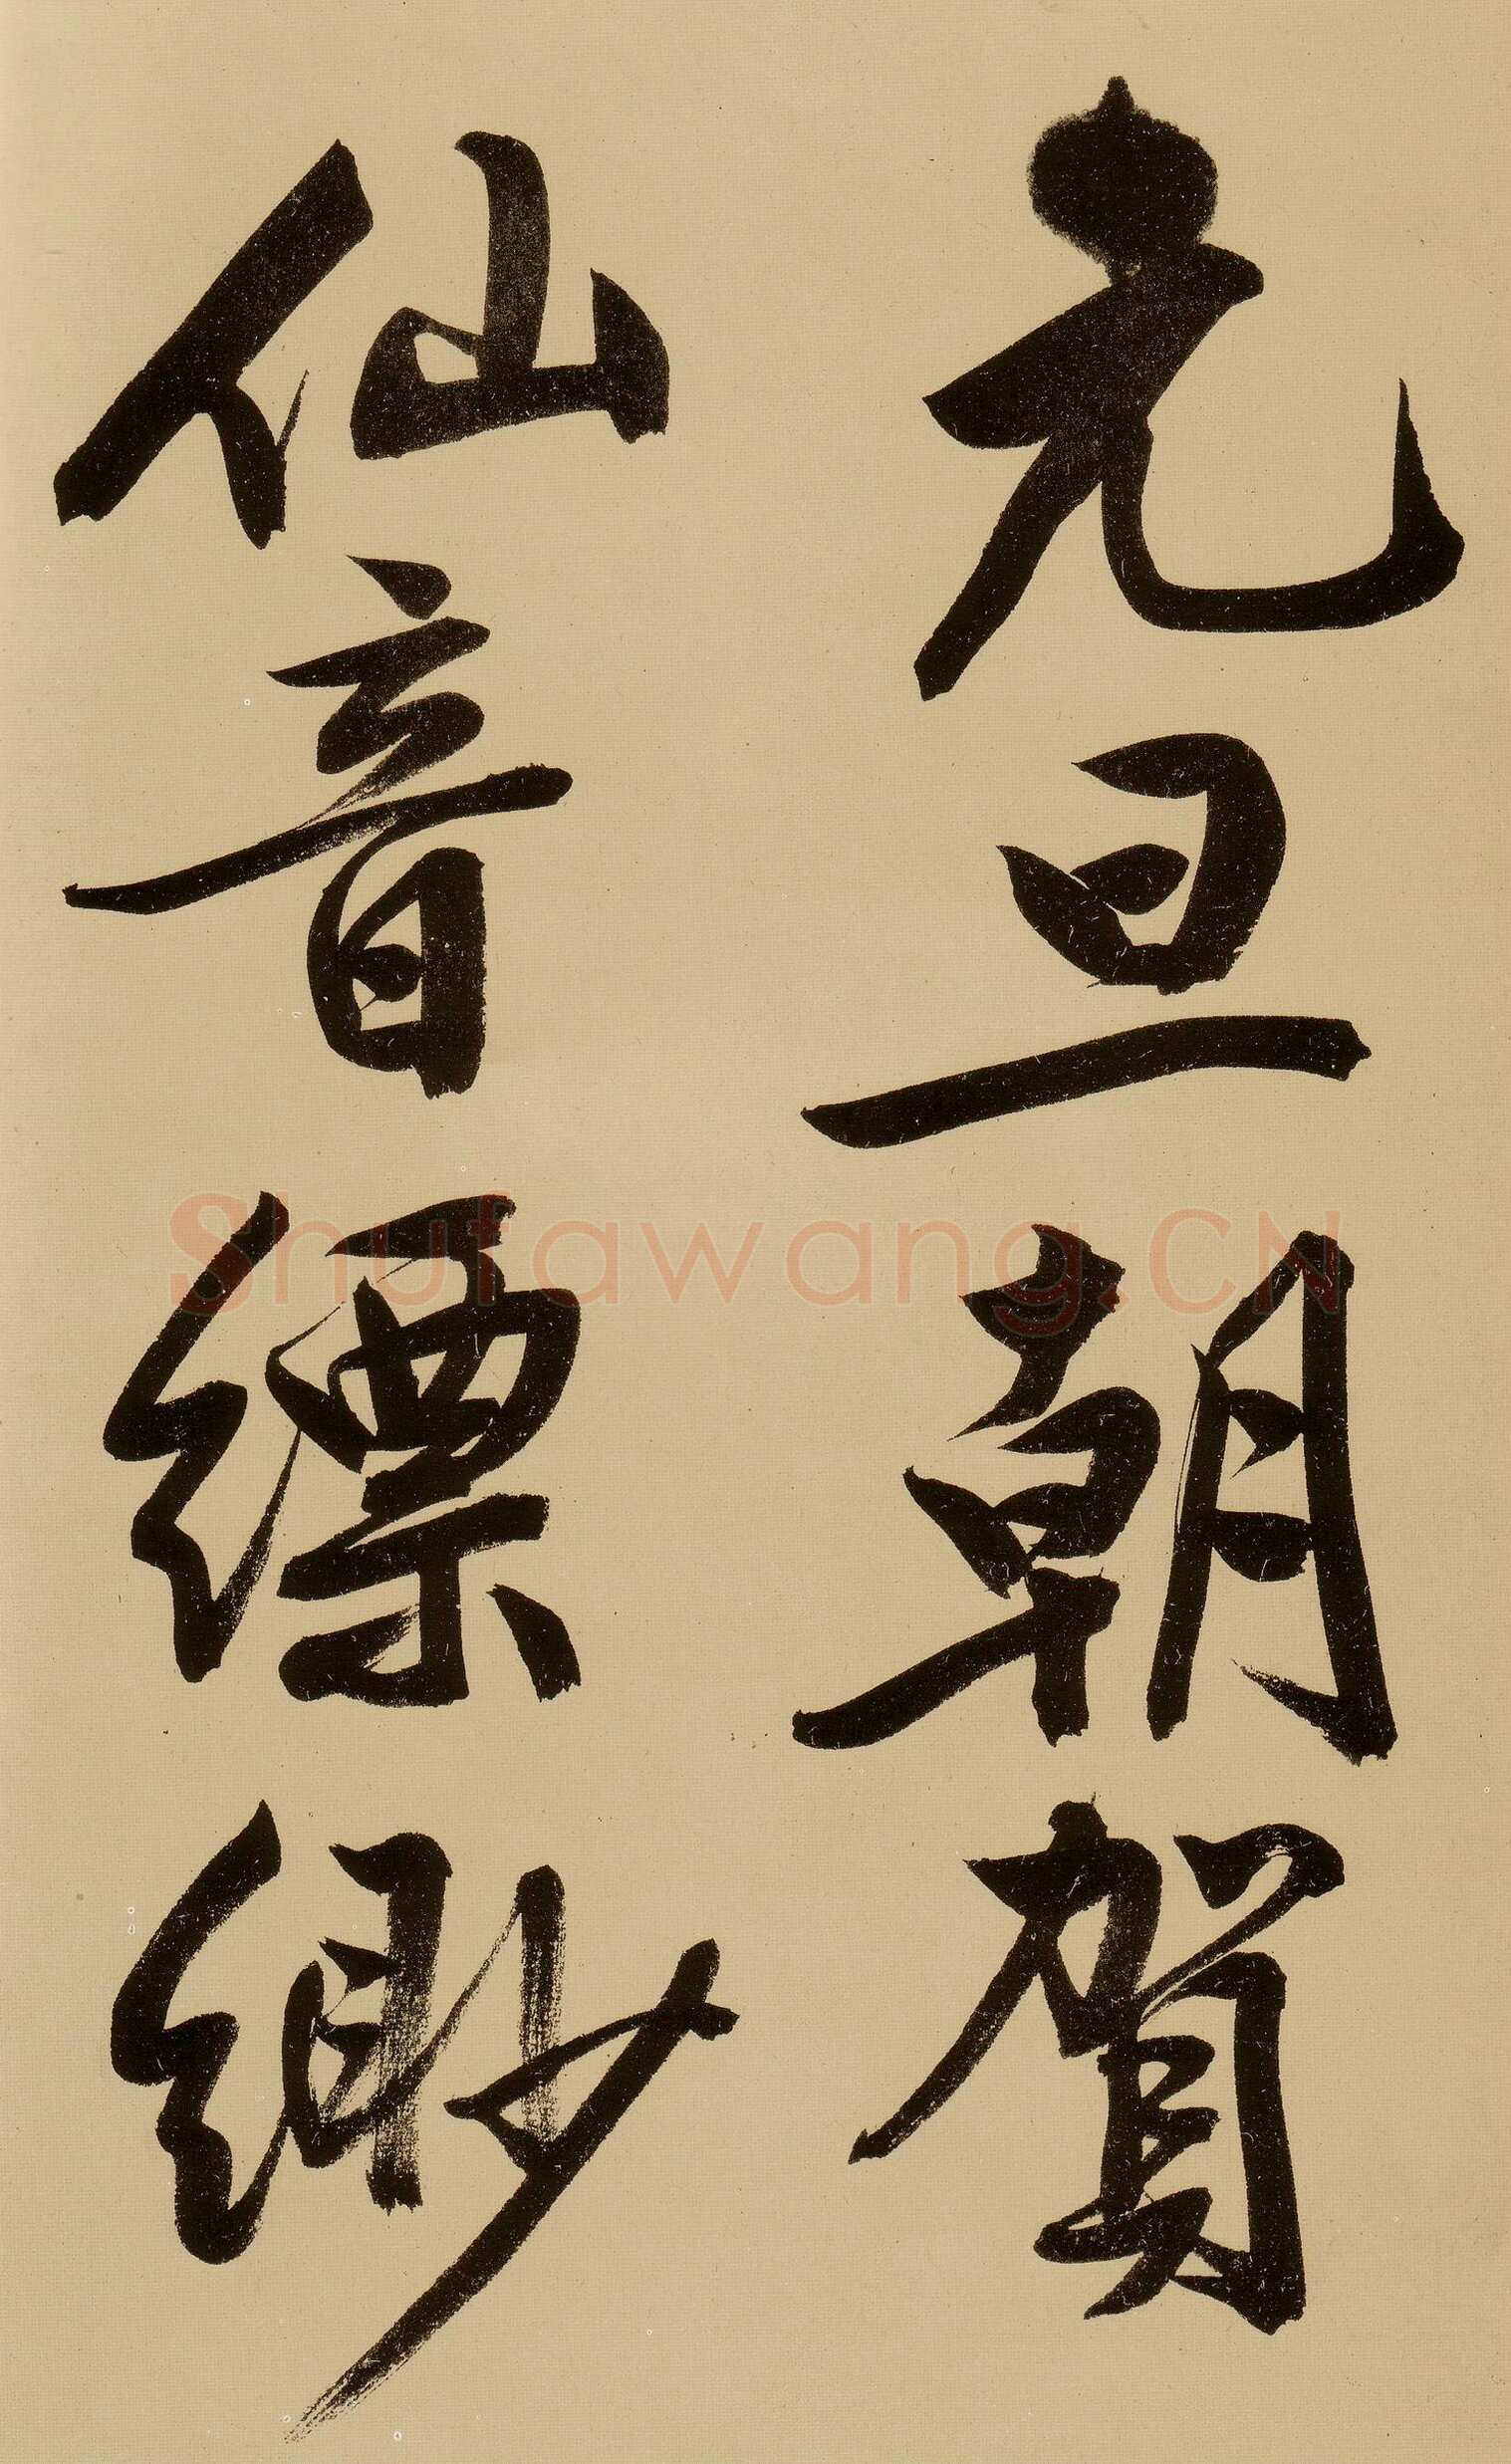 元旦朝賀
仙音縹緲
Shufawang.CN